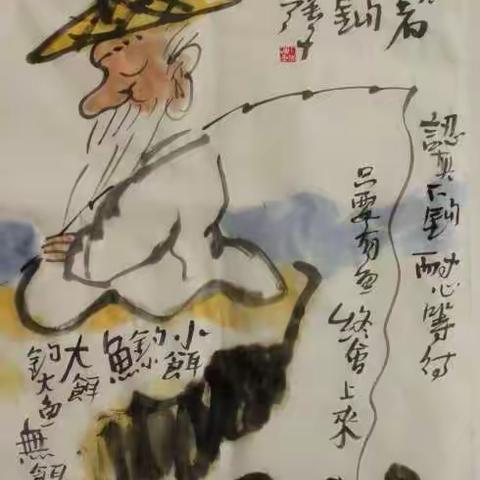 者
釣
認真下釣 耐心等待
只要有魚 終會上來
小餌
釣小
魚
大餌
釣大魚
無餌